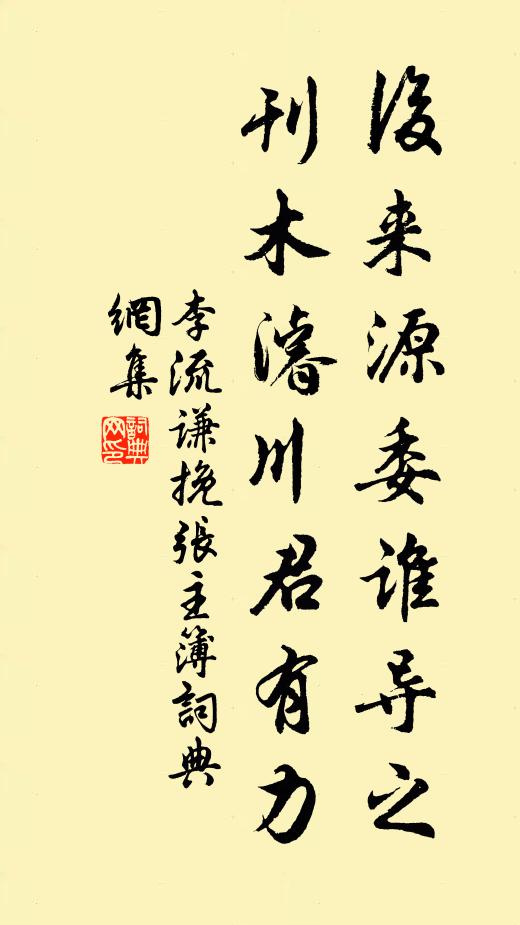 後来源委谁导之
刊木濬川君有力
李流谦挽張主簿詞典
網集
詞典
网印